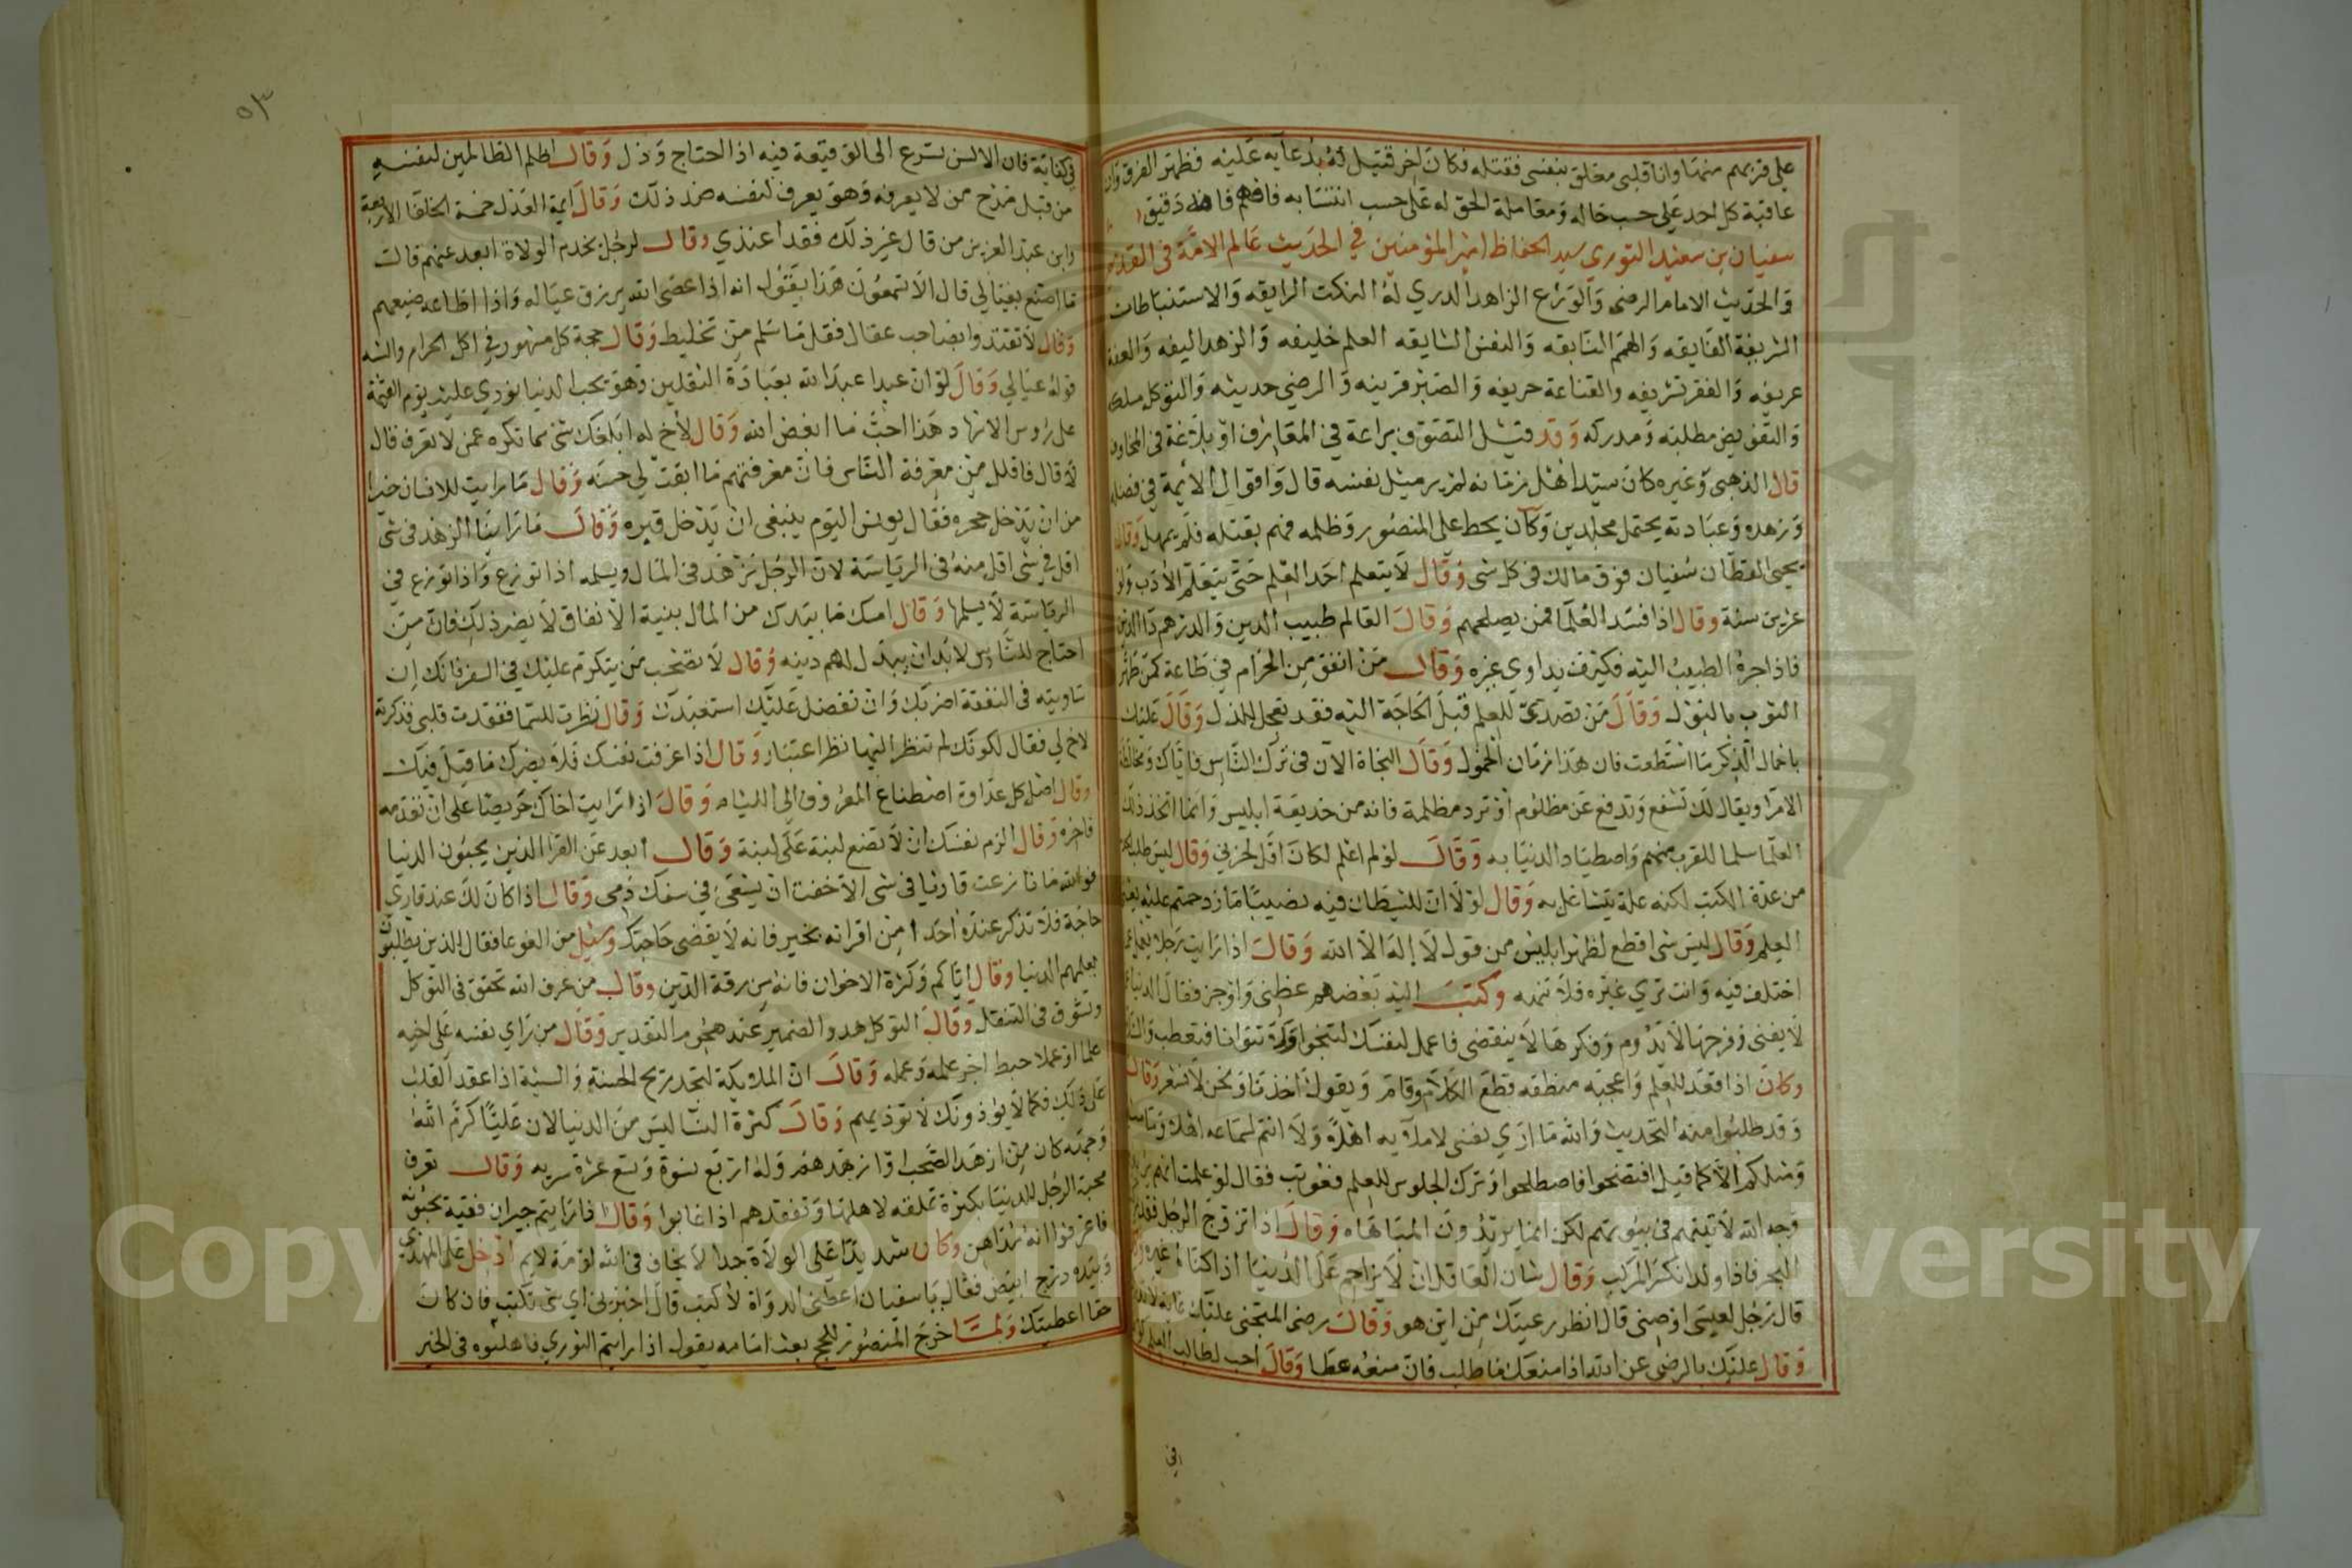 على قربهم منها وانا قلبى معلق بنفسى فقتله فكان اخر قتيل له بدعآيه عليه فظهر الفرق وان
عاقبة كل احد على حسب حاله ومعاملة الحق له على حسب انتسابه فافهم فانه دقيق
سفيان بن سعيد الثوري سيد الحفاظ امير المؤمنين في الحديث عالم الامة في الفقه
والحديث الامام الرضى والورع الزاهد الدري له النكت الرايقه والاستنباطات
الشريفة الفايقه والهمم السابقه والنفس الشايقه العلم حليفه والزهد اليفه والعفة
عريفه والفقر تشريفه والقناعة حريفه والصبر قرينه والرضى حديثه والتوكل مسلكه
والتفويض مطلبه ومدركه وقد قيل التصوف براعة في المعارف او بلاغة في المخاوف
قال الذهبى وغيره كان سيد اهل زمانه لم ير مثل نفسه قال واقوال الايمة في فضله
وزهده وعبادته يحتمل مجلدين وكان يحط على المنصور وظلمه فهم بقتله فلم يمهل وقال
يحيى القطان سفيان فوق مالك فى كل شى وقال لا يتعلم احد العلم حتى يتعلم الادب ولو
عشرين سنة وقال اذا فسد العلما فمن يصلحهم وقال العالم طبيب الدين والدرهم دا الدين
فاذا جر الطبيب اليه فكيف يداوي غيره وقال من انفق من الحرام في طاعة كمن طهر
الثوب بالبول وقال من تصدى للعلم قبل الحاجة اليه فقد تعجل الذل وقال عليك
باخمال الذكر ما استطعت فان هذا زمان الخمول وقال النجاة الآن فى ترك الناس فاياك ومخالطة
الامرا ويقال لك تشفع وتدفع عن مظلوم او ترد مظلمة فانه من خديعة ابليس وانما اتخذ ذلك
العلما سلما للقرب منهم واصطياد الدنيا به وقال لو لم اعلم لكان اقل لحزني وقال ليس طلب العلم
من عدة الكتب لكنه علة يتشاغل به وقال لولا ان للشيطان فيه نصيبا ما ازدحمتم عليه يعنى
العلم وقال ليس شى اقطع لظهر ابليس من قول لا اله الا الله وقال اذا رايت رجلا يعمل عملا
اختلف فيه وانت ترى غيره فلا تنهه وكتب اليه بعضهم عظنى واوجز فقال الدنيا غمها
لا يفنى وفرحها لا يدوم وفكرها لا ينقضى فاعمل لنفسك لتنجوا ولا تتوانا فتعطب
وكان اذا قعد للعلم واعجبه منطقه قطع الكلام وقام ويقول اخذنا ونحن لا نشعر وقال
وقد طلبوا منه التحديث والله ما ارى نفسى لاملآيه اهلا ولا انتم لسماعه اهلا وما مثلى
ومثلكم الا كما قيل افتضحوا فاصطلحوا وترك الجلوس للعلم فعوتب فقال لو علمت انهم يريدون
وجه الله لاتيتهم في بيوتهم لكن انما يريدون المباهاه وقال اذا تزوج الرجل فقد ركب
البحر فاذا ولد انكسر المركب وقال شان العاقل ان لا يزاحم على الدنيا اذا كفاه غيره
قال رجل لعيسى اوصنى قال انظر رغيفك من اين هو وقال رضى المتجنى عليك غاية لا تدرك
وقال عليك بالرضى عن الله اذا منعك ما طلب فان منعه عطا وقال احب لطالب العلم ان يكون
فى
في كفاية فان الالسن تسرع الى الوقيعة فيه اذا احتاج وذل وقال اظلم الظالمين لنفسه
من قبل مدح من لا يعرفه وهو يعرف لنفسه ضد ذلك وقال ايمة العدل خمسة الخلفا الاربعة
وابن عبد العزيز من قال غير ذلك فقد اعتدى وقال لرجل يخدم الولاة ابعد عنهم قالت
ما اصنع بعيالي قال الا تسمعون هذا يقول انه اذا عصى الله يرزق عياله واذا اطاعه ضيعهم
وقال لا تقتدوا بصاحب عيال فقل ما سلم من تخليط وقال حجة كل متهور في اكل الحرام والشبه
قوله عيالي وقال لو ان عبدا عبد الله بعبادة الثقلين وهو يحب الدنيا نودي عليه يوم القيمة
على روس الاشهاد هذا احب ما ابغض الله وقال لاخ له ابلغك شى مما تكره عمن لا تعرف قال
لا قال فاقلل من معرفة الناس فان معرفتهم ما ابقت لي حسنة وقال ما رايت للانسان خيرا
من ان يدخل جحره فقال يونس اليوم ينبغى ان يدخل قبره وقال ما راينا الزهد فى شى
اقل في شى اقل منه فى الرياسة لان الرجل يزهد فى المال ويسلمه اذا نوزع واذا نوزع فى
الرياسة لا يسلمها وقال امسك ما بيدك من المال بنية الانفاق لا يضر ذلك فان من
احتاج للناس لا بد ان يبذل لهم دينه وقال لا تصحب من يتكرم عليك في السفر فانك ان
ساويته فى النفقة اضر بك وان تفضل عليك استعبدك وقال نظرت للسما ففقدت قلبى فذكرته
لاخ لي فقال لكونك لم تنظر اليها نظر اعتبار وقال اذا عرفت نفسك فلا يضرك ما قيل فيك
وقال اصل كل عداوة اصطناع المعروف الى اللئام وقال اذا رايت اخاك حريصا على ان تقدمه
فاخره وقال الزم نفسك ان لا تضع لبنة على لبنة وقال ابعد عن القرا الذين يحبون الدنيا
فوالله ما نازعت قارئا في شى الا خفت ان يسعى في سفك دمى وقال اذا كان لك عند قارى
حاجة فلا تذكر عنده احدا من اقرانه بخير فانه لا يقضى حاجتك وسئل من الغوغا فقال الذين يطلبون
بعلمهم الدنيا وقال اياكم وكثرة الاخوان فانه من رقة الدين وقال من عرف الله تحقق فى التوكل
وتشوق فى التنقل وقال التوكل هدو الضمير عند هجوم التقدير وقال من راى نفسه على اخيه
علما او عملا حبط اجر علمه وعمله وقال ان الملايكة لتجد ريح الحسنة والسيئة اذا عقد القلب
على ذلك فكما لا يؤذونك لا تؤذيهم وقال كثرة النسا ليس من الدنيا لان عليا كرم الله
وجهه كان من ازهد الصحب وازهدهم وله اربع نسوة وتسع عشرة سريه وقال تعرف
محبة الرجل للدنيا بكثرة تملقه لاهلها وتفقدهم اذا غابوا وقال اذا رايتم جيران فقيه تحبونه
فاعرفوا انه مداهن وكان شديدا على الولاة جدا لا يخاف فى الله لومة لايم ادخل على المهدي
وبيده درج ابيض فقال يا سفيان اعطنى الدواة لاكتب قال اخبرنى اي شى تكتب فان كان
حقا اعطيتك ولما خرج المنصور للحج بعث امامه يقول اذا رايتم الثوري فاصلبوه فى الخبر
Copyright © King Saud University